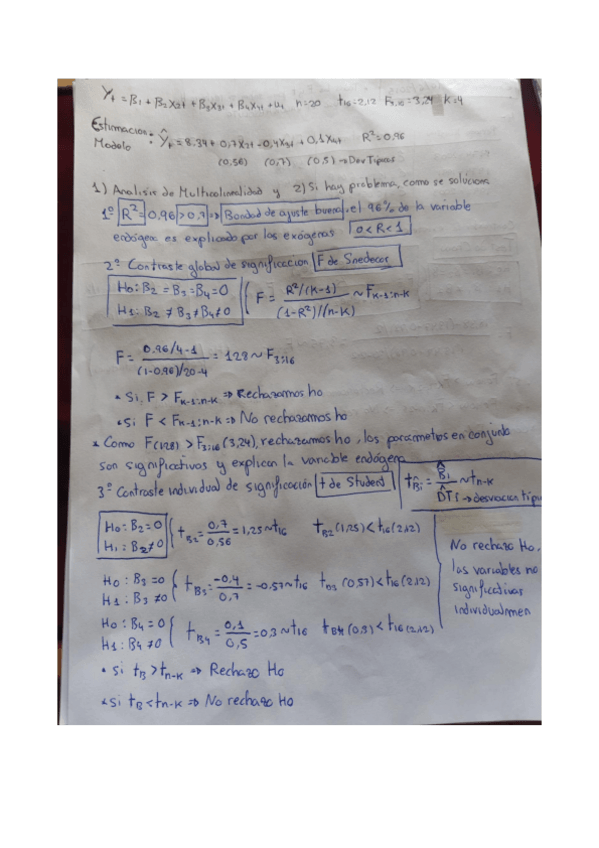 Yt = B1 + B2X2t + B3X3t + B4X4t + ut n=20 t16=2,12 F3,16=3,24 K=4
Estimacion Modelo : Ŷt = 8.34 + 0,7X2t - 0,4X3t + 0,1X4t R²=0,96
(0,56) (0,7) (0,5) → Dev Típicas
1) Analisis de Multicolinealidad y 2) Si hay problema, como se soluciona
1º R² = 0,96 > 0,7 ⇒ Bondad de ajuste buena, el 96% de la variable
endógena es explicado por las exógenas 0<R<1
2º Contraste global de significacion F de Snedecor
H0: B2 = B3 = B4 = 0
H1: B2 ≠ B3 ≠ B4 ≠ 0
F = R²/(K-1) / (1-R²)/(n-K) ~ FK-1;n-K
F = 0.96/4-1 / (1-0,96)/20-4 = 128 ~ F3;16
• Si, F > FK-1;n-K ⇒ Rechazamos ho
• Si F < FK-1;n-K ⇒ No rechazamos ho
* Como F(128) > F3;16 (3,24), rechazamos ho, los parámetros en conjunto
son significativos y explican la variable endógena
3º Contraste individual de significación t de Student
tB̂i = B̂i / D̂Ti ~ tn-K → desviacion típi
H0: B2 = 0
H1: B2 ≠ 0
tB2 = 0,7 / 0,56 = 1,25 ~ t16 tB2 (1,25) < t16 (2,12)
H0: B3 = 0
H1: B3 ≠ 0
tB3 = -0,4 / 0,7 = -0,57 ~ t16 tB3 (0,57) < t16 (2,12)
H0: B4 = 0
H1: B4 ≠ 0
tB4 = 0,1 / 0,5 = 0,3 ~ t16 tB4 (0,3) < t16 (2,12)
No rechazo Ho.
las variables no
significativas
individualmen
• Si tB > tn-K ⇒ Rechazo Ho
• Si tB < tn-K ⇒ No rechazo Ho